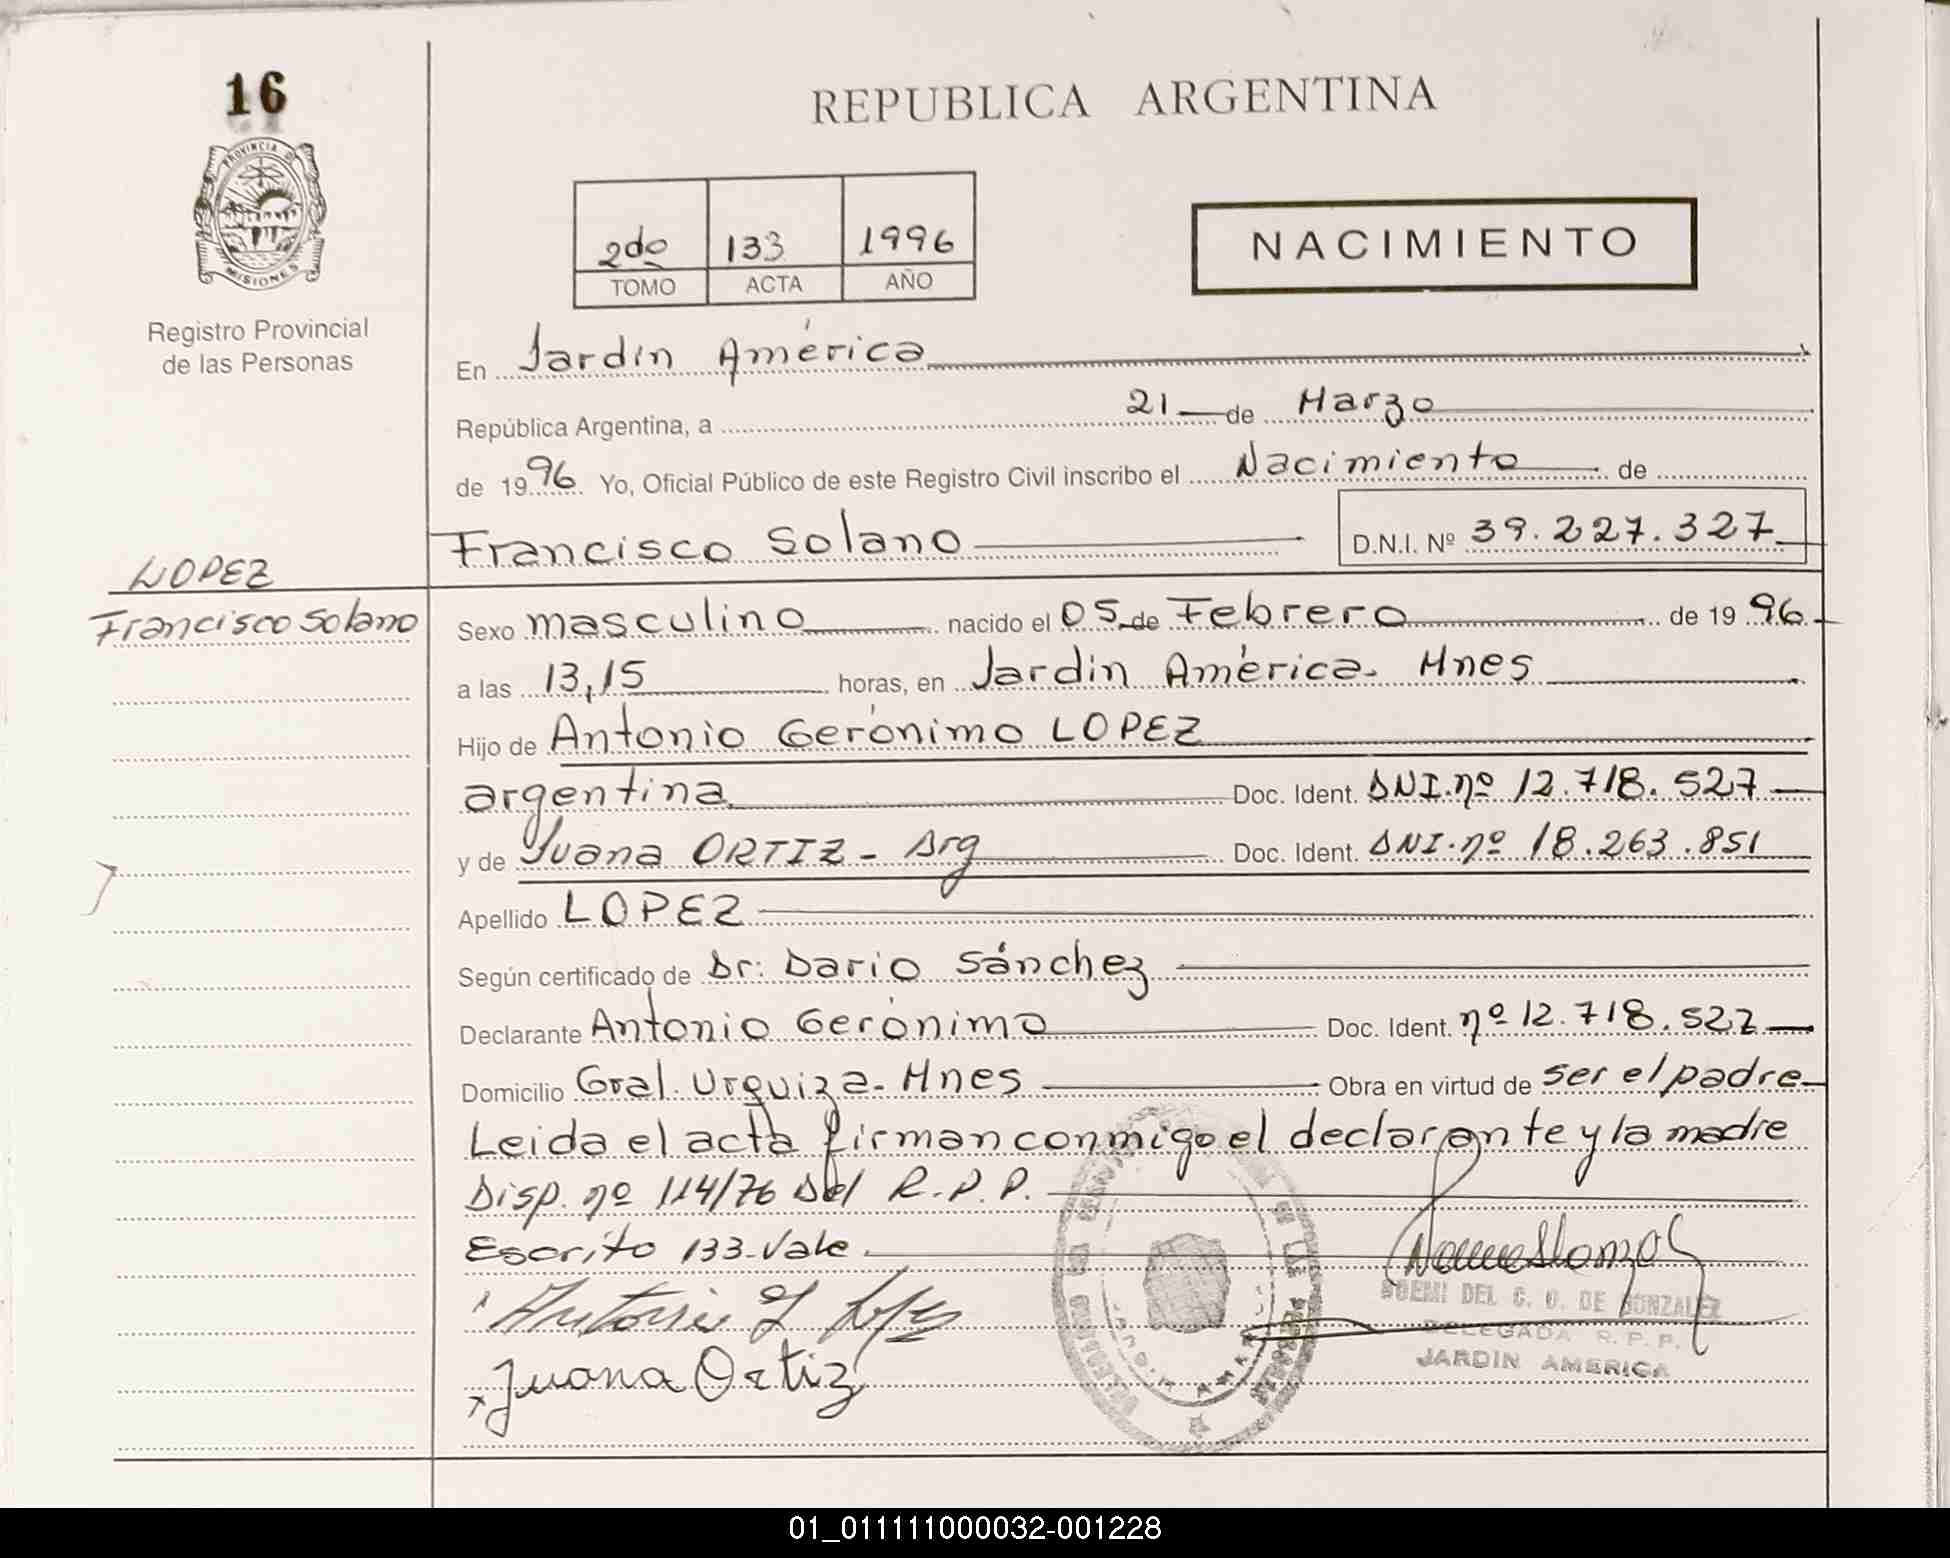 16
PROVINCIA DE
MISIONES
Registro Provincial
de las Personas
REPUBLICA ARGENTINA
2do 133 1996
TOMO ACTA AÑO
NACIMIENTO
En Jardín América
República Argentina, a 21 de Marzo
de 1996 Yo, Oficial Público de este Registro Civil inscribo el Nacimiento de
Francisco Solano D.N.I. Nº 39.227.327
LOPEZ
Francisco Solano
Sexo masculino nacido el 05 de Febrero de 1996
a las 13,15 horas, en Jardin América. Mnes
Hijo de Antonio Gerónimo LOPEZ
argentina Doc. Ident. DNI.nº 12.718.527
y de Juana ORTIZ - Arg Doc. Ident. DNI.nº 18.263.851
Apellido LOPEZ
Según certificado de Dr: Dario Sánchez
Declarante Antonio Gerónimo Doc. Ident. nº 12.718.527
Domicilio Gral. Urquiza. Mnes Obra en virtud de ser el padre
Leida el acta firman conmigo el declarante y la madre
Disp. nº 114/76 Del R.P.P.
Escrito 133-Vale.
Antonio G Lopez
Juana Ortiz
NOEMI DEL C. O. DE GONZALEZ
DELEGADA R.P.P.
JARDIN AMERICA
01_011111000032-001228